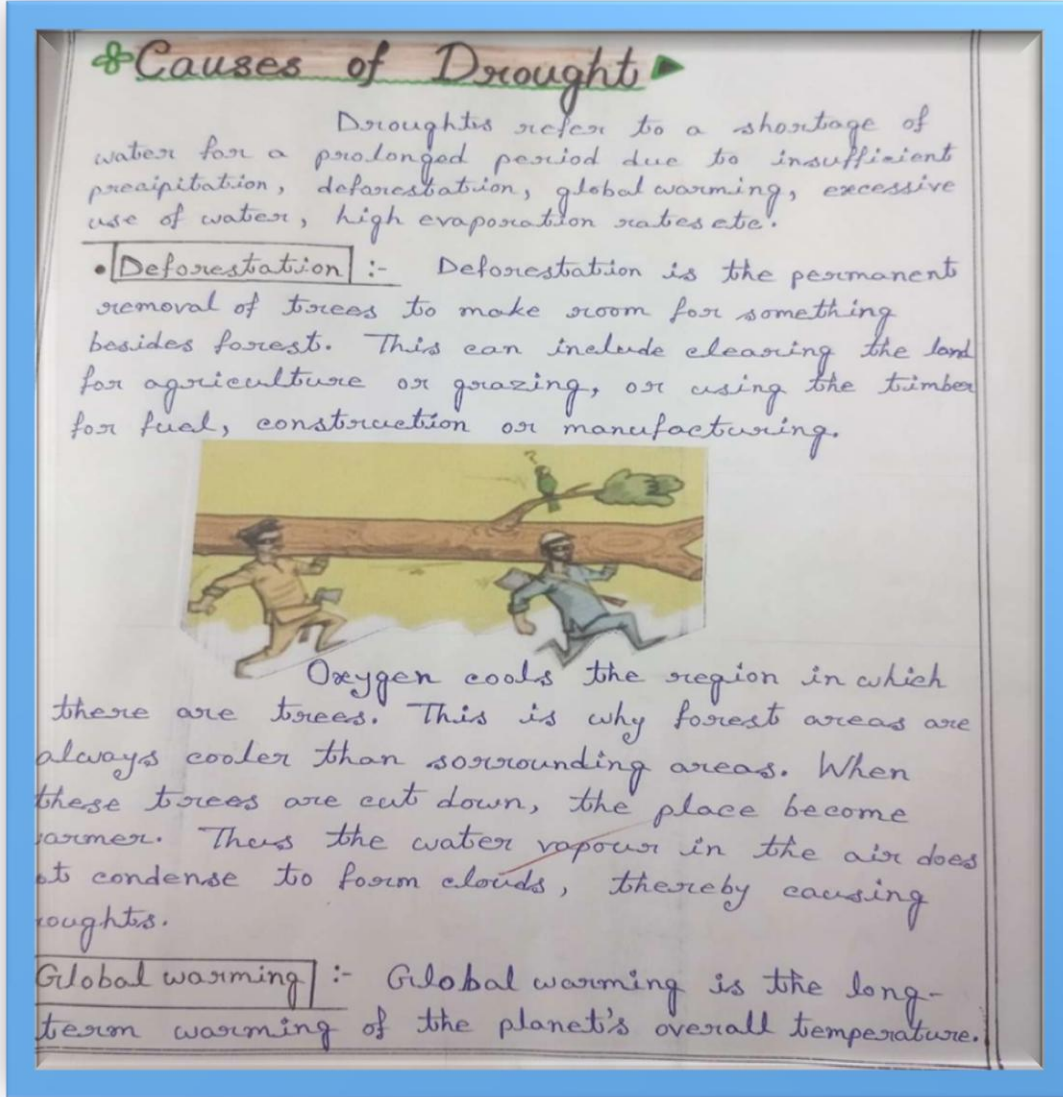 Causes of Drought
Droughts refer to a shortage of
water for a prolonged period due to insufficient
precipitation, deforestation, global warming, excessive
use of water, high evaporation rates etc.
• Deforestation :- Deforestation is the permanent
removal of trees to make room for something
besides forest. This can include clearing the land
for agriculture or grazing, or using the timber
for fuel, construction or manufacturing.
?
Oxygen cools the region in which
there are trees. This is why forest areas are
always cooler than sorrounding areas. When
these trees are cut down, the place become
armer. Thus the water vapour in the air does
ot condense to form clouds, thereby causing
roughts.
Global warming :- Global warming is the long-
term warming of the planet's overall temperature.